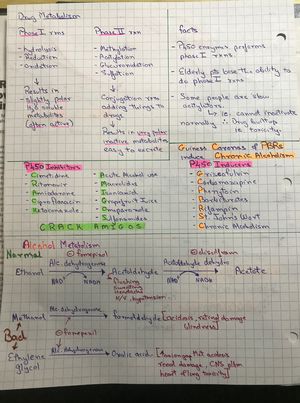 Drug Metabolism
Phase I rxns
- hydrolysis
- Reduction
- Oxidation
Results in
slightly polar
H₂O soluble
metabolites
(often active)
Phase II rxn
- Methylation
- Acetylation
- Glucuronidation
- Sulfation
Conjugation rxn
adding things to
drugs
Results in very polar
inactive metabolites
easy to excrete
facts
- P450 enzymes performs
phase I rxns.
- Elderly pts lose the ability to
do phase I rxns
- Some people are slow
acetylators
↳ ie cannot inactivate
normally ∴ Drug buildup
is toxicity
P450 Inhibitors
- Cimetidine
- Ritonavir
- Amiodarone
- Ciprofloxacin
- Ketoconazole
- Acute Alcohol use
- Macrolides
- Isoniazid
- Grapefruit Juice
- Omeprazole
- Sulfonamides
CRACK AMIGOS
Guiness Coronas & PBRs
induce Chronic Alcoholism
P450 Inducers
- Griseofulvin
- Carbamazepine
- Phenytoin
- Barbiturates
- Rifampin
- St. Johns Wort
- Chronic Alcoholism
Alcohol Metabolism
Normal
⊖ fomepizol
⊖ disulfiram
Ethanol Alc. dehydrogenase Acetaldehyde Acetaldehyde dehydro Acetate
NAD⁺ NADH NAD⁺ NADH
flushing
sweating
headache
N/V, hypotension
Methanol Alc-dehydrogenase formaldehyde [acidosis, retinal damage
blindness]
Bad
⊖ fomepizol
Ethylene
glycol
Alc. dehydrogenase Oxalic acid
renal damage, CNS